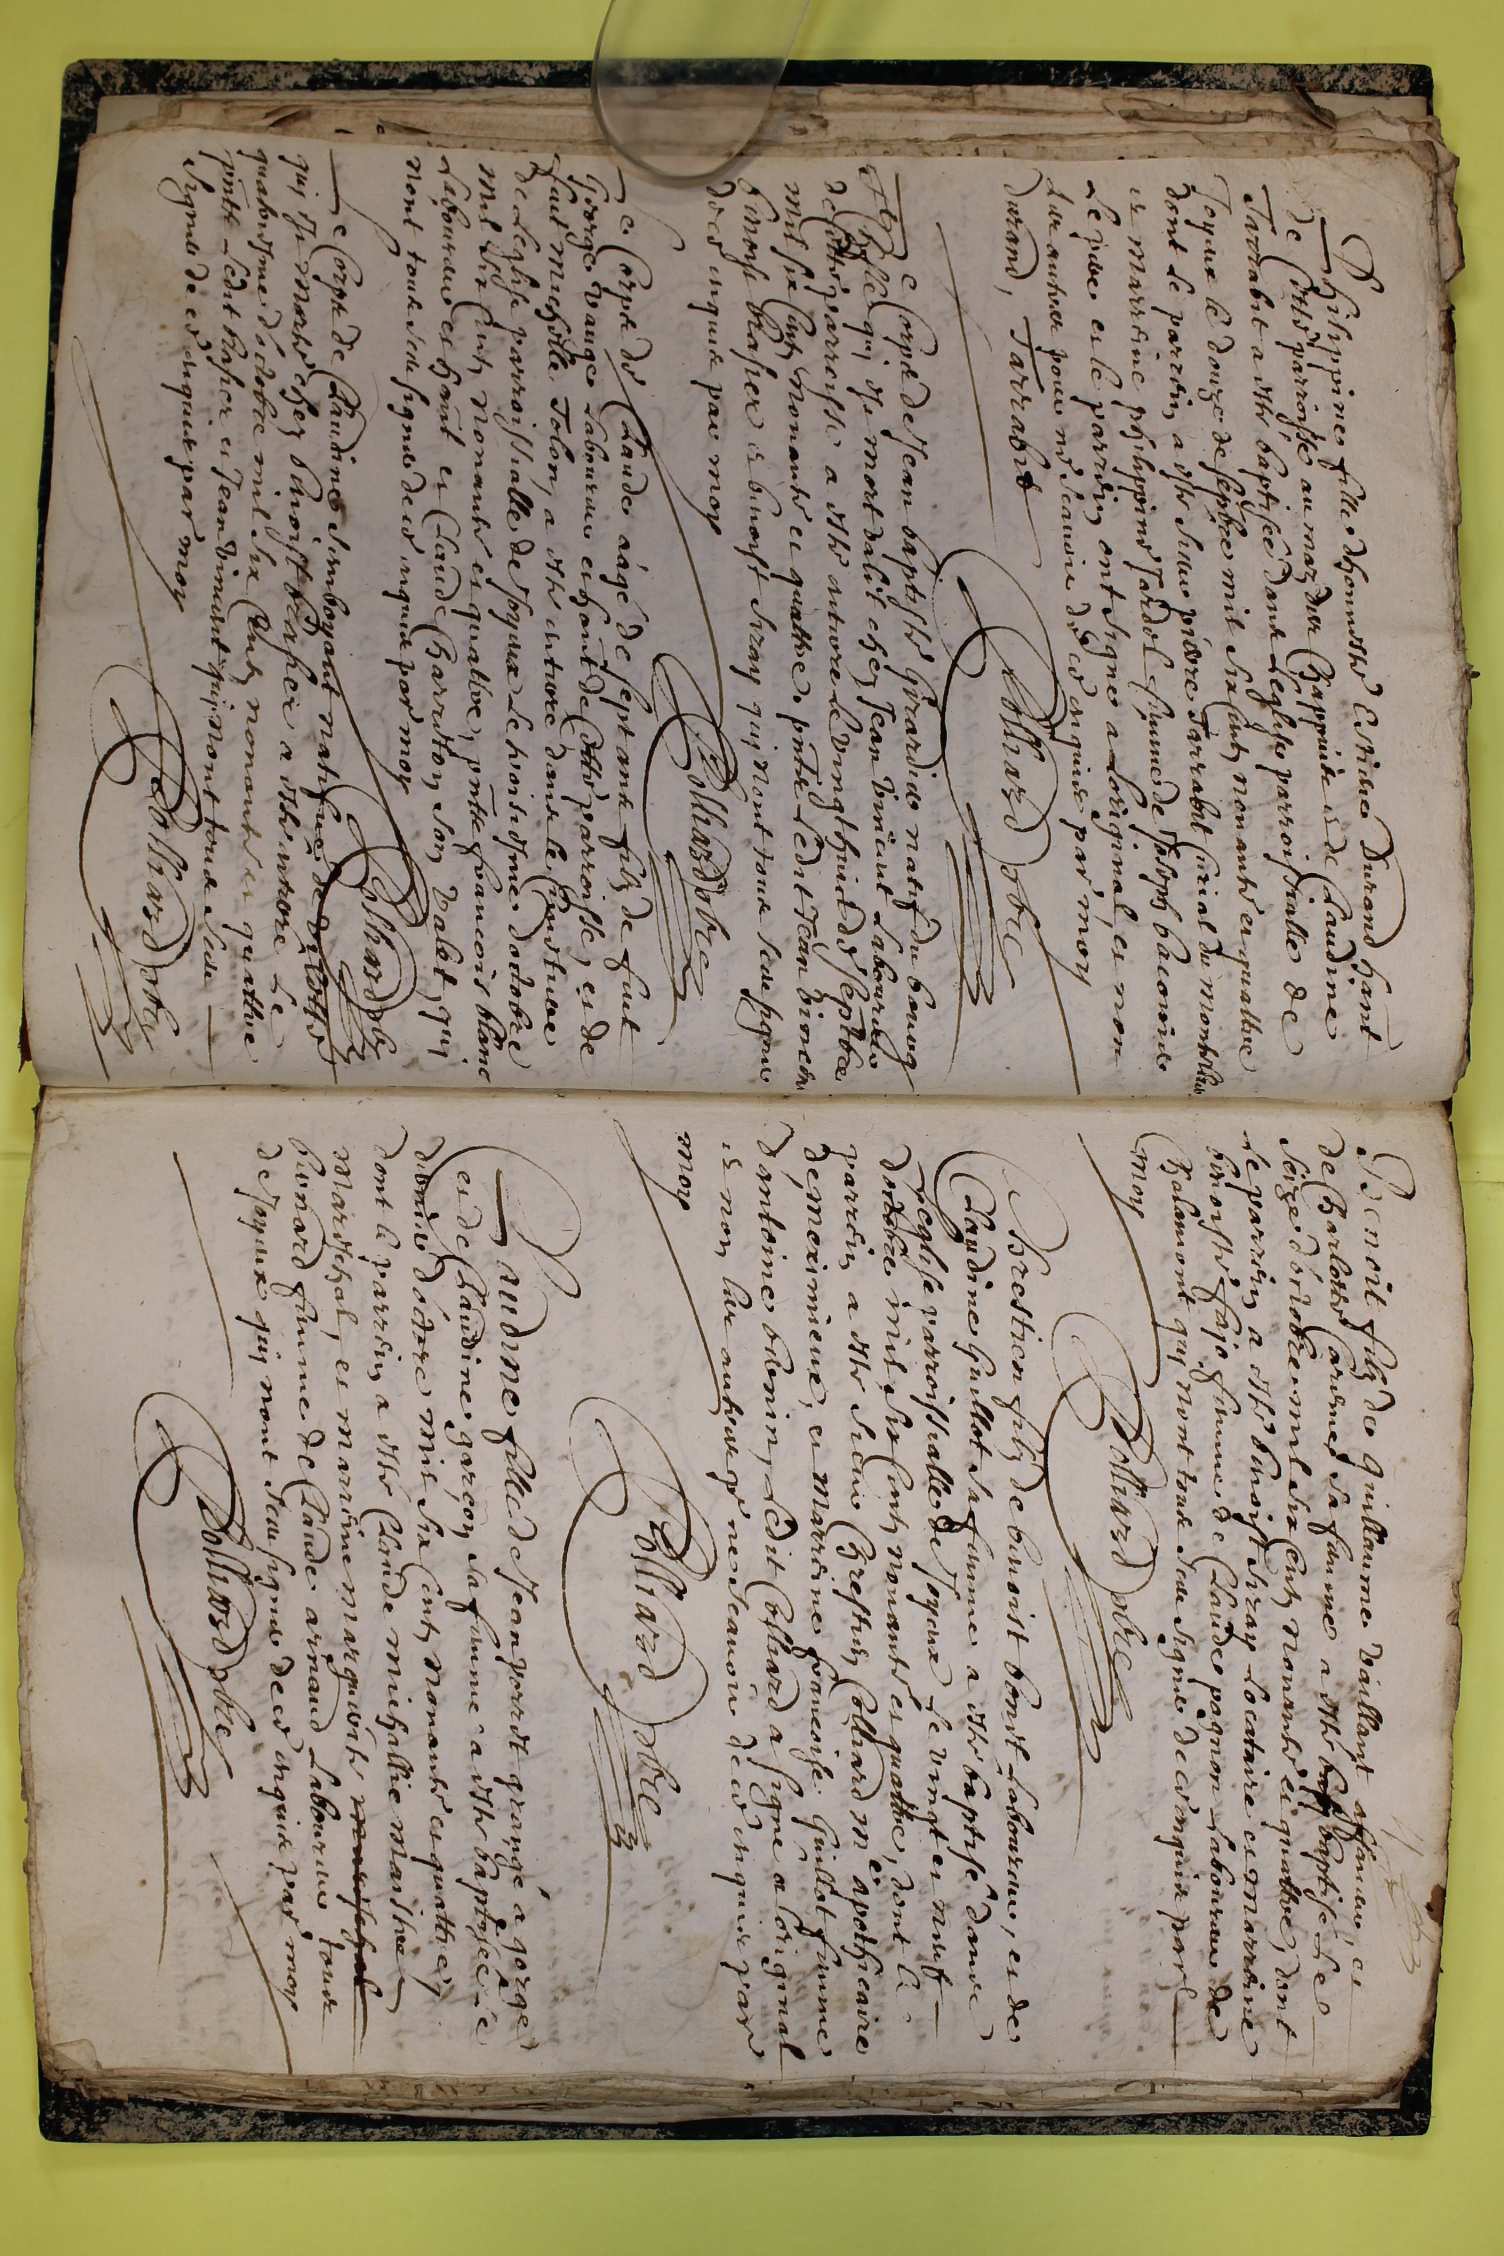 Philippine fille dhonneste Estienne Durand hant
de cette parroisse au maz dur Chappuis et de Claudine
Tarrabat a este baptisée dans leglise parroissialle de
Joyeux le douze de sepbre mil six cents nonante et quattre
dont le parrin a este sieur pierre Tarrabat
et marrine philippine Jardol femme de Joseph
Le pere et le parrin ont signe a loriginal, et non
les autres pour ne scavoir de ce enquis par moy
Durand, Tarrabat
Colliard pbre
Le Corps de Jean baptiste Girardie natif du bourg
de qui est mort dalit chez Jean Laboureur
de cette parroisse a este enterre le vingthuict de Septbre
mil six cents nonante et quattre pntz Ledit Jean
benoist brasier et benoist Siray qui nont tous sceu signe
de ce enquis par moy
Colliard pbre
Le Corps de Claude aagé de septante filz de feut
George vauge Laboureur et hant de cette parroisse, et de
feue michelle Tolon, a este enterre dans le Cimetiere
de Leglise parroissialle de Joyeux le huictiesme doctobre
mil six Cents nonante et quattre, pntz francois blanc
Laboureur et hant et Claude Charreton son valet, qui
nont tous sceu signe de ce enquis par moy
Colliard pbre
Le Corps de Claudine native de
qui est morte chez benoist brasier a este enterre Le
quatorzme doctobre mil six Cents nonante et quattre
pntz Ledit brasier et Jean qui nont tous sceu
signe de ce enquis par moy
Colliard pbre
Benoit filz de guillaume vaillant affaneur, et
de Charlotte Carrier sa femme a este baptisé Le
Seize doctobre mil six Cents nonante et quattre, dont
Le parrin a este benoist Siray Locataire et marrine
benoiste fajo femme de Claude pognon Laboureur de
Chalamont qui nont tous sceu signe de ce enquis par
moy
Colliard pbre
Chrestien filz de benoist bondt Laboureur, et de
Claudine Guillot sa femme a este baptisé dans
Leglise parroissialle de Joyeux Le vingt et neuf
doctobre mil six Cents nonante et quattre, dont le
parrin a este sieur Chrestien Colliard me apothicaire
de meximieux, et marrine francoise Guillot femme
dantoine bonin, Ledit Colliard a signe a loriginal
et non les autres pr ne scavoir de ce enquis par
moy
Colliard pbre
Claudine fille de Jean perret grangé a gorge
et de Claudine garçon sa femme a este baptisée le
mil six Cents nonante et quattre,
dont le parrin a este Claude michallie maistre
mareschal, et marrine marguerite mareschal
bernard femme de Claude arnaud Laboureur tous
de Joyeux qui nont sceu signe de ce enquis par moy
Colliard pbre